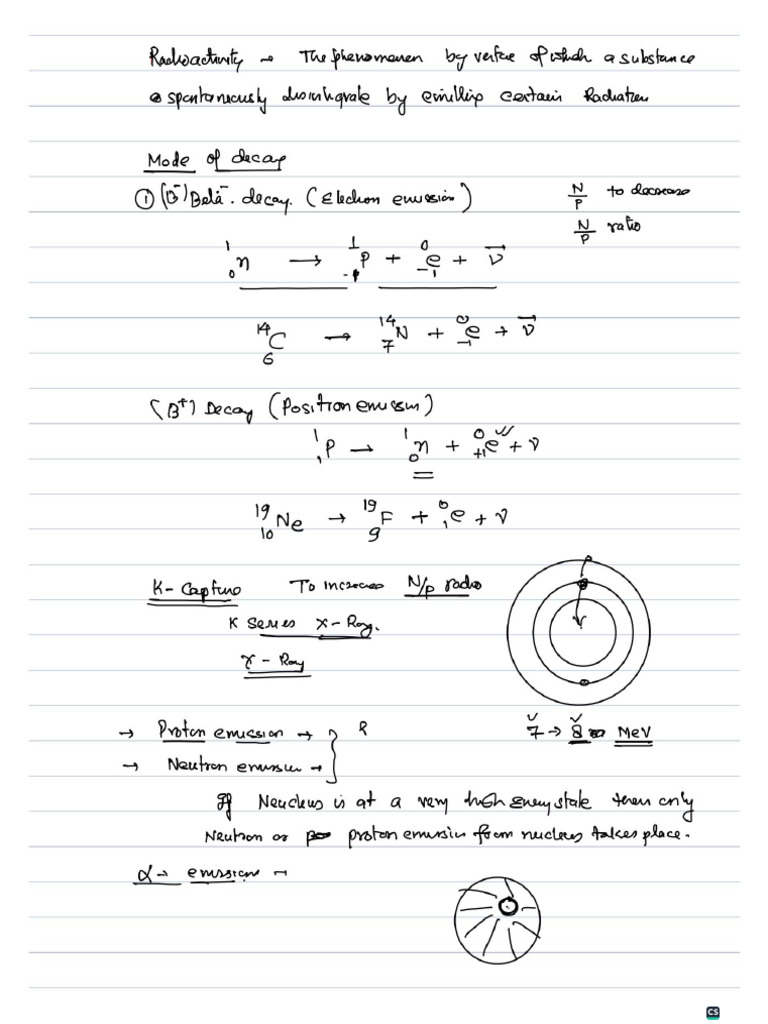 Radioactivity → The phenomenon by vertue of which a substance
spontaneously disintegrate by emitting certain Radiation
Mode of decay
① (β⁻) Beta⁻ decay. (Electron emission)
N/P to decrease
N/P ratio
¹₀n → ¹P + ⁰₋₁e + ν̅
¹⁴₆C → ¹⁴₇N + ⁰₋₁e + ν̅
(β⁺) Decay (Positron emission)
¹₁P → ¹₀n + ⁰₊₁e + ν
¹⁹₁₀Ne → ¹⁹₉F + ⁰₁e + ν
K- Capture To increase N/p ratio
K series X-Ray.
γ-Ray
→ Proton emission →
7 → 8 MeV
→ Neutron emission →
If Neucleus is at a very high Energy state then only
Neutron or proton emission from nucleus takes place.
α → emission →
CS